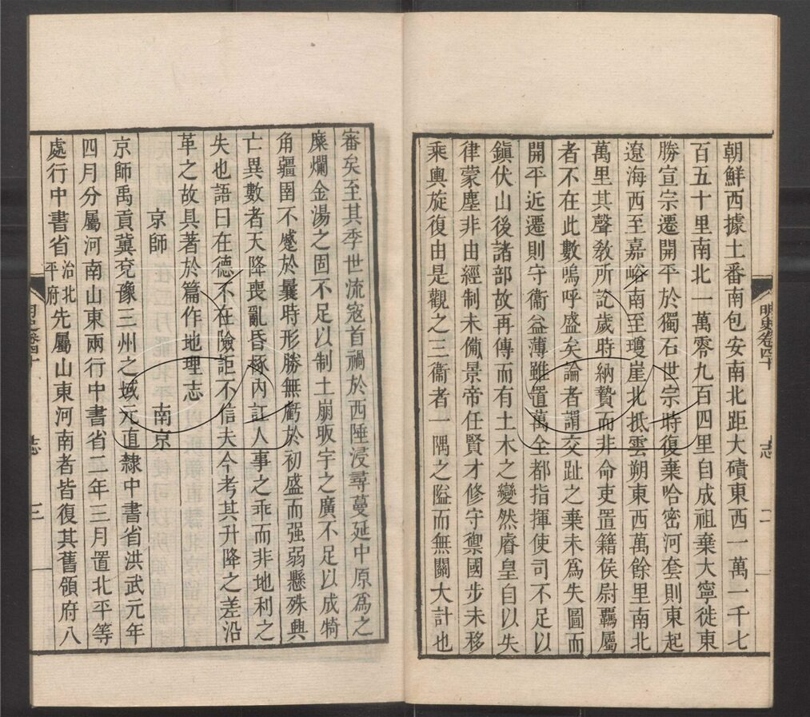 朝鮮西據土番南包安南北距大磧東西一萬一千七
百五十里南北一萬零九百四里自成祖棄大寧徙東
勝宣宗遷開平於獨石世宗時復棄哈密河套則東起
遼海西至嘉峪南至瓊崖北抵雲朔東西萬餘里南北
萬里其聲教所訖歲時納贄而非命吏置籍侯尉羈屬
者不在此數嗚呼盛矣論者謂交趾之棄未爲失圖而
開平近遷則守衞益薄雖置萬全都指揮使司不足以
鎭伏山後諸部故再傳而有土木之變然睿皇自以失
律蒙塵非由經制未僃景帝任賢才修守禦國步未移
乘輿旋復由是觀之三衞者一隅之隘而無關大計也
志 二
審矣至其季世流宼首禍於西陲浸尋蔓延中原爲之
糜爛金湯之固不足以制土崩昄宇之廣不足以成犄
角疆圉不蹙於曩時形勝無虧於初盛而强弱懸殊興
亡異數者天降喪亂昏椓內訌人事之乖而非地利之
失也語曰在德不在險詎不信夫今考其升降之差沿
革之故具著於篇作地理志
京師 南京
京師禹貢冀兗豫三州之域元直隸中書省洪武元年
四月分屬河南山東兩行中書省二年三月置北平等
處行中書省治北平府先屬山東河南者皆復其舊領府八
志 三